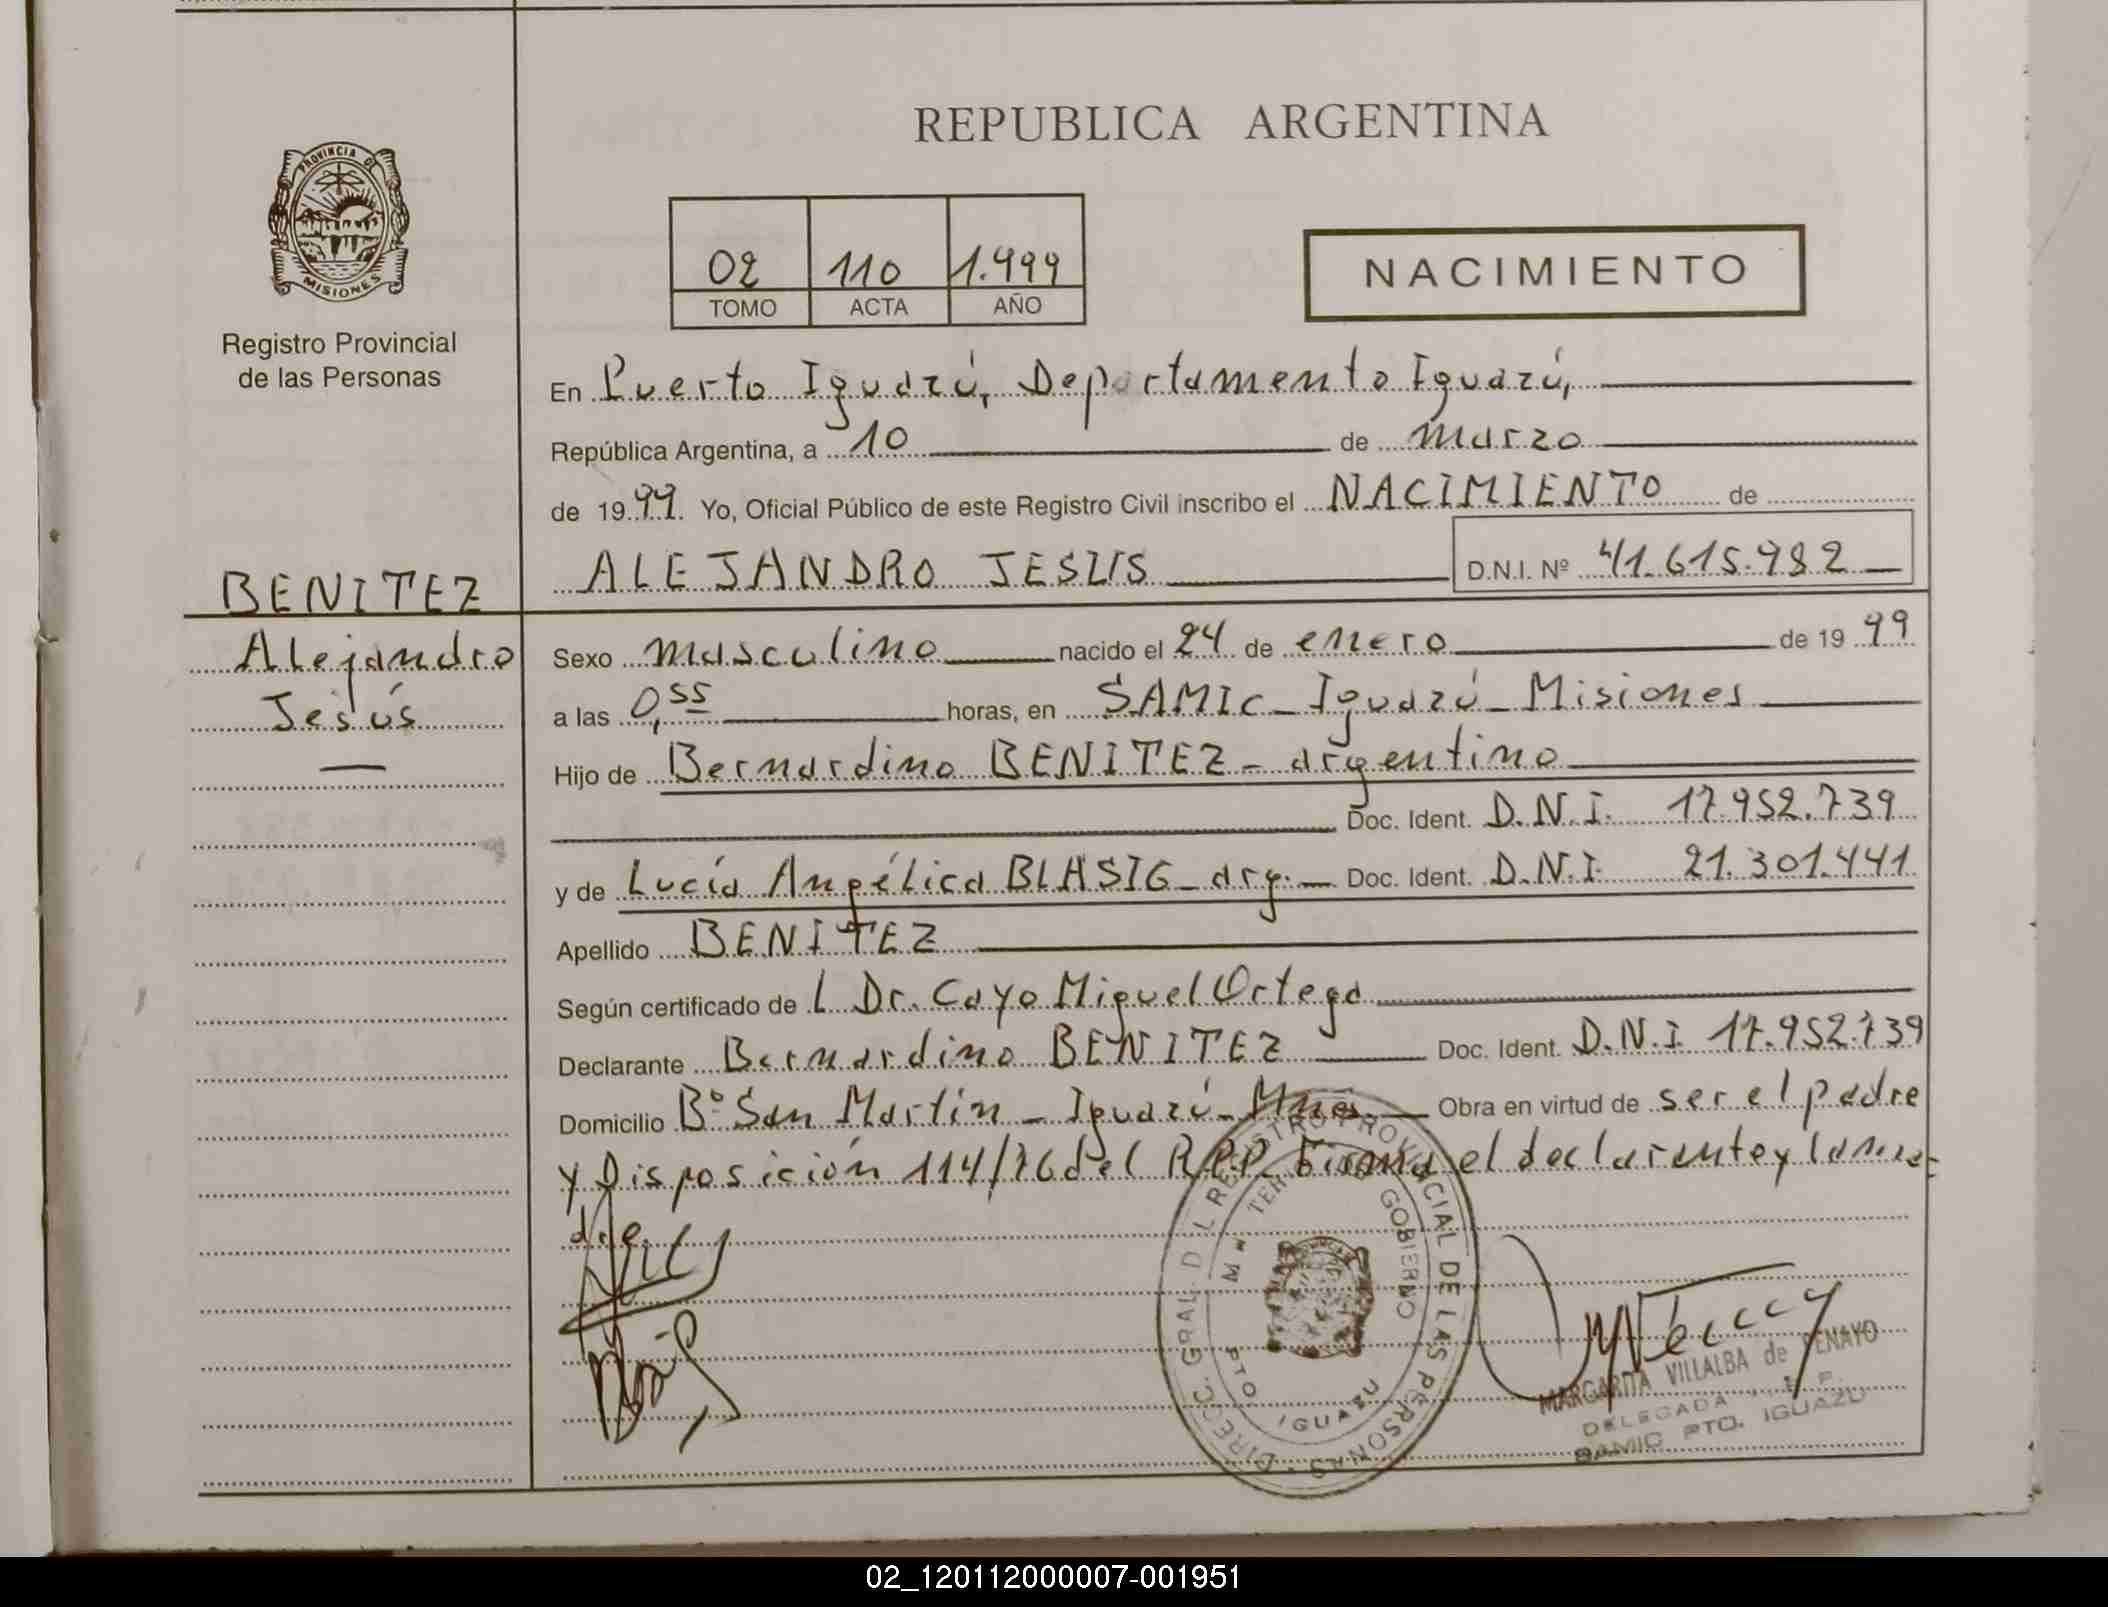 REPUBLICA ARGENTINA
PROVINCIA DE
MISIONES
Registro Provincial
de las Personas
02 110 1.999
TOMO ACTA AÑO
NACIMIENTO
En Puerto Iguazú, Departamento Iguazú,
República Argentina, a 10 de marzo
de 1999. Yo, Oficial Público de este Registro Civil inscribo el NACIMIENTO de
ALEJANDRO JESUS D.N.I. Nº 41.615.982
BENITEZ
Alejandro
Jesús
Sexo masculino nacido el 24 de enero de 1999
a las 0,55 horas, en SAMIC - Iguazú - Misiones
Hijo de Bernardino BENITEZ - argentino
Doc. Ident. D.N.I. 17.952.739
y de Lucía Angélica BLASIG - arg. Doc. Ident. D.N.I. 21.301.441
Apellido BENITEZ
Según certificado de l Dr. Cayo Miguel Ortega
Declarante Bernardino BENITEZ Doc. Ident. D.N.I. 17.952.739
Domicilio Bº San Martín - Iguazú - Mnes. Obra en virtud de ser el padre
y Disposición 114/76 del R.P.P. Firma el declarante y la ma-
dre.
DIRECC. GRAL. D L REGISTRO PROVINCIAL DE LAS PERSONAS
GOBIERNO
PTO. IGUAZU
MARGARITA VILLALBA de PENAYO
DELEGADA
SAMIC PTO. IGUAZU
02_120112000007-001951